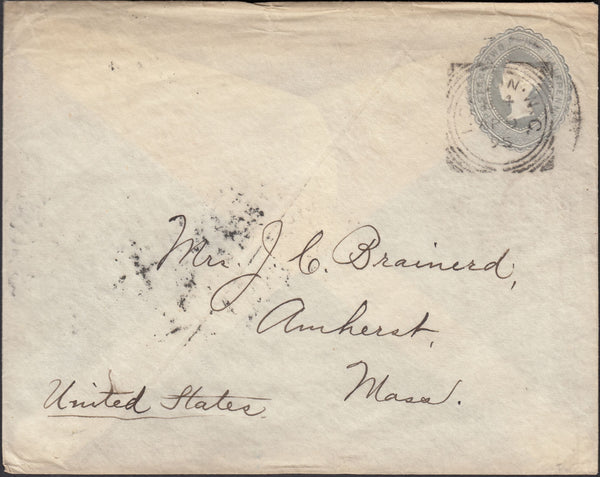 Mrs J. C. Brainerd,
Amherst,
Mass.
United States.